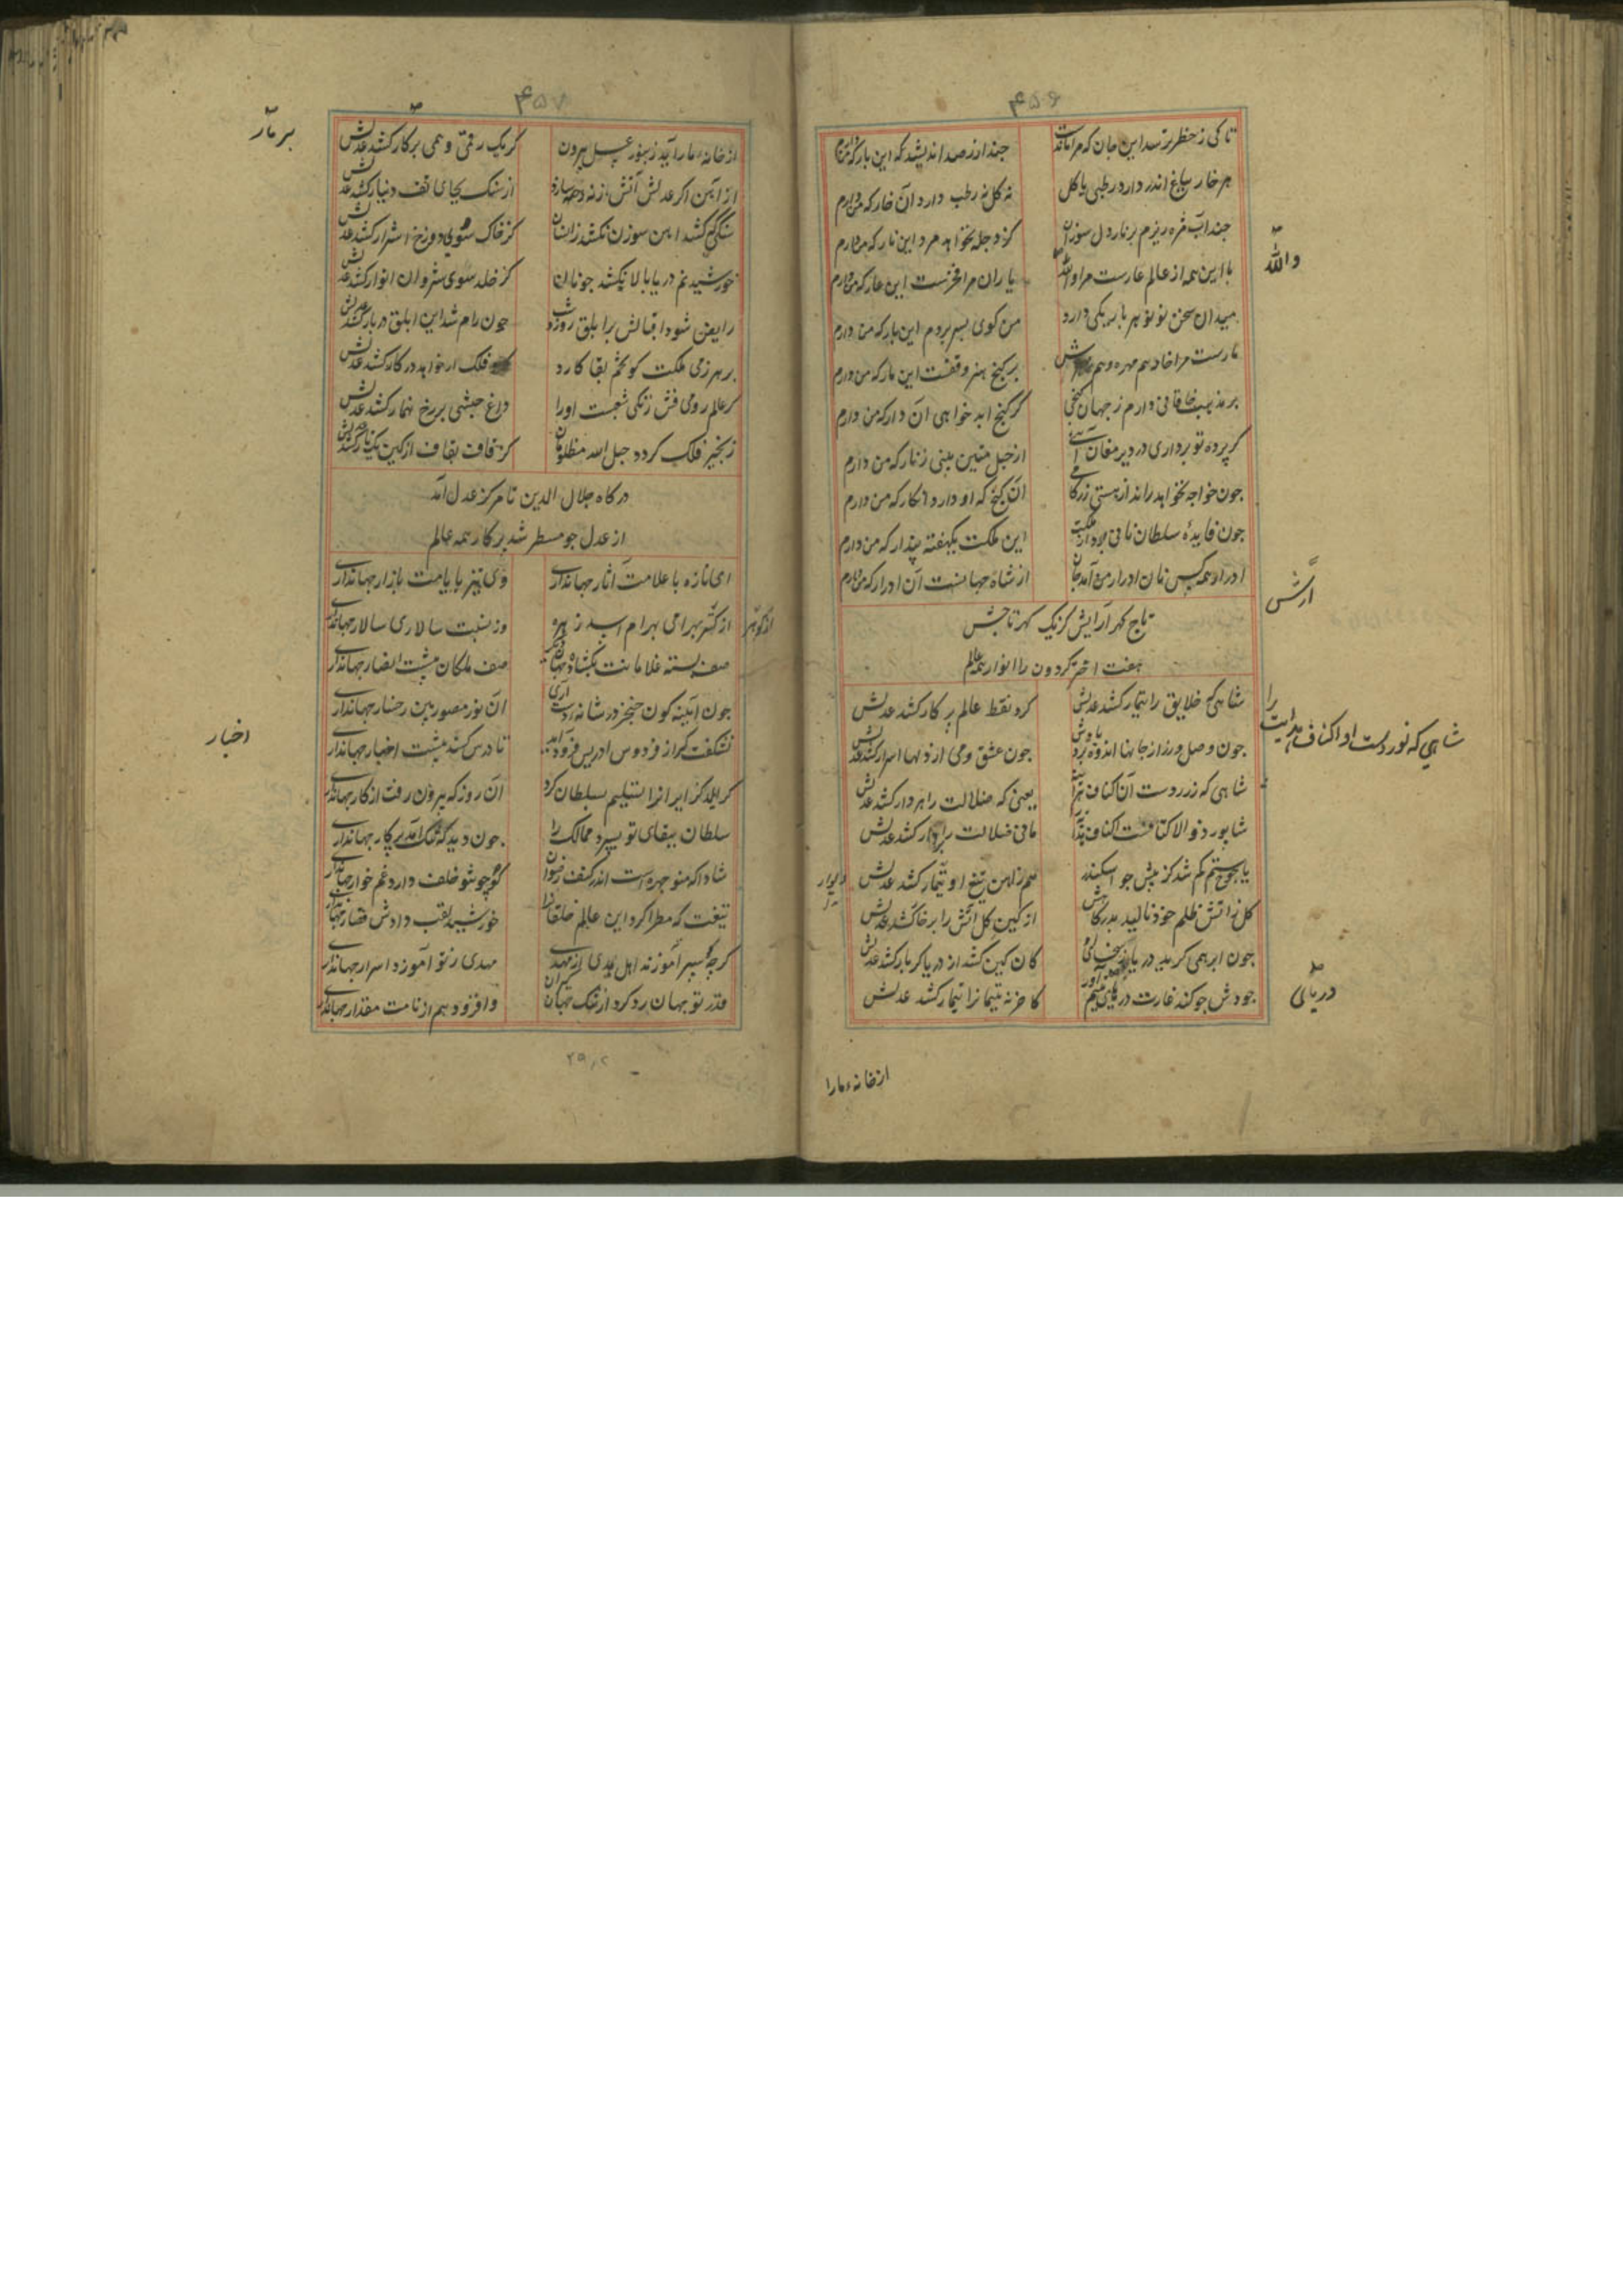 ۴۵۶
تا کی ز خطر ترسد این جان که مرا ماندست
چند از رصد اندیشد که این بار که من دارم
هر خار بباغ اندر دارد رطبی یا کل
نه کل نه رطب دارد آن خار که من دارم
چند آب مژه ریزم بر نار دل سوزان
کز دجله نخواهد مرد این نار که من دارم
با این همه از عالم عارست مرا والله
یاران مرا فخرست این عار که من دارم
میدان سخن نو نو هر بار یکی دارد
من کوی بسر بردم این بار که من دارم
مارست مرا خامه هم مهره و هم
بر کنج هنر وقفست این مار که من دارم
بر مذهب خاقانی دارم ز جهان کنجی
کر کنج ابد خواهی آن دار که من دارم
کر پرده تو برداری در دیر مغان آیی
از حبل متین بینی زنار که من دارم
جون خواجه نخواهد راند از هستی زر کامی
آن کنج که او دارد انکار که من دارم
جون فایدهٔ سلطان نانی بود از ملکت
این ملکت یکهفته پندار که من دارم
ادرار همه کس نان ادرار من آمد جان
از شاه جهانست آن ادرار که من دارم
تاج کهر آرایش کز یک کهر تاجش
هفت اختر کردون را انوار همه عالم
شاهی که خلایق را تیمار کشد عدلش
کرد نقط عالم پر کار کشد عدلش
جون وصل ورز از جانها اندوه برد یادش
جون عشق و می از دلها اسرار کشد عدلش
شاهی که زر دست آن کناف
یعنی که ضلالت را بر دار کشد عدلش
شابور ذو الاکتافست اکناف
مانی ضلالت بر دار کشد عدلش
یاجوج ستم کم شد کز پیش جو اسکندر
هم ز آهن تیغ او تیمار کشد عدلش
کل ز آتش ظلم خود نالید بدرکاهش
از کین کل آتش را بر خاکشد عدلش
جون ابر همی کرید دریا ز سخای او
کان کین کشد از دریا کر بار کشد عدلش
جودش جو کند غارت دریای یتیم آور
کاخر نه یتیمانرا تیمار کشد عدلش
والله
ارتش
شاهی که نور دست او اکناف هدایت را
دیوار
دریائی
از خانه ما را
۴۵۷
از خانه ما را آید زنبور عسل بیرون
کر یک رقمی وهمی بر کار کشد عدلش
از آهن اکر عدلش آتش
از سنک بجای تف دنیار کشد عدلش
سنکی کشد آهن سوزن نکشد زانسان
کز خاک سوی دوزخ اشرار کشد عدلش
خورشید نم دریا بالا نکشد جونان
کز خلد سوی شروان انوار کشد عدلش
رایض شود اقبالش بر ابلق روز و شب
جون رام شد این ابلق در بار کشد عدلش
بر هر زمی ملکت کو تخم بقا کارد
فلک ار خواهد در کار کشد عدلش
کر عالم رومی فش زنکی شعبست او را
داغ حبشی بر رخ نهمار کشد عدلش
زنجیر فلک کردد حبل الله مظلومان
کز قاف بقاف از کین یک تار کشد عدلش
درکاه جلال الدین تا مرکز عدل آمد
از عدل جو مسطر شد پرکار همه عالم
ای تازه با علامت آثار جهانداری
وی تیز بایامت بازار جهانداری
از کشر بهرامی بهرام اسد زهره
وز نسبت سالاری سالار جهانداری
صف بسته غلامانت بکشاده جهان
صف ملکان پشت انصار جهانداری
جون آینه کون خنجر در شانهٔ دست آری
آن نور مصور بین رخسار جهانداری
نشکفت کر از فردوس ادریس فرود آید
تا درس کند پیشت اخبار جهانداری
کر ایلدکز ایرانرا تسلیم بسلطان کرد
آن روز که بیرون رفت از کار جهانداری
سلطان ببقای تو سپرد ممالک را
جون دید که شک آمد بر کار جهانداری
شاد آنکه منوجهر است اندر کنف رضوان
کو چو تو خلف دارد غم خوار جهانداری
تیغت که مطرا کرد این عالم خلقانرا
خورشید لقب دادش قصار جهانداری
کرچه ز پسر آموزند اهل هدی از مهدی
مهدی ز تو آموزد اسرار جهانداری
قدر تو جهان رد کرد از ننک جهان
وافزود هم از نامت مقدار جهانداری
بر تار
از کوهر
اخبار
۲۵٫۲